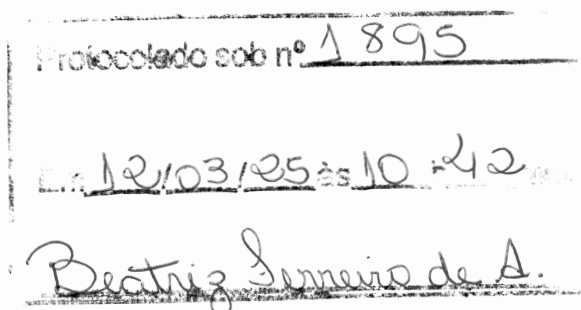 Protocolado sob nº 1895
Em 12/03/25 às 10:42
Beatriz Ferreira de A.